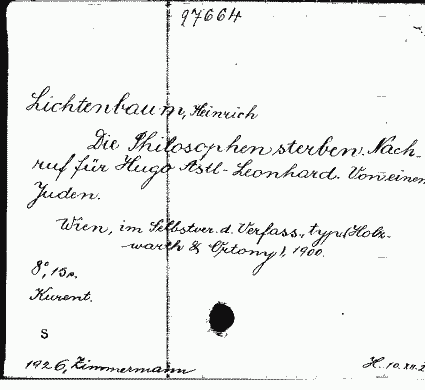 97664
Lichtenbaum, Heinrich
Die Philosophen sterben. Nach-
ruf für Hugo Astl-Leonhard. Von einem
Juden.
Wien, im Selbstver. d. Verfass., typ. (Holz-
warth & Ortony), 1900.
8°, 15 s.
Kurent.
S
1926, Zimmermann
H. 10.XII.2